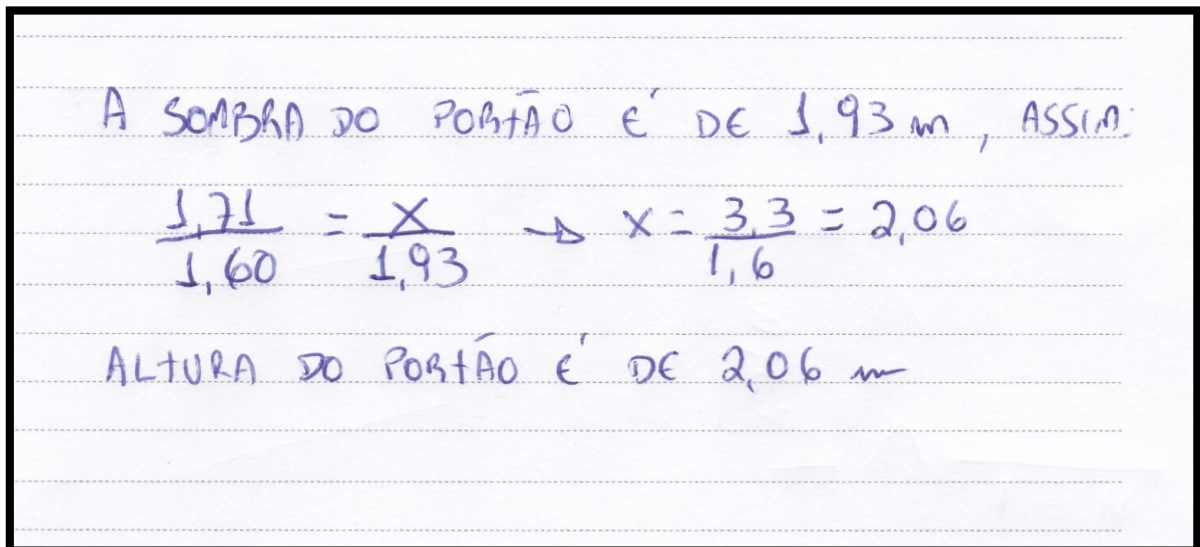 A SOMBRA DO PORTÃO É DE 1,93 m, ASSIM:
1,71/1,60 = X/1,93 → X = 3,3/1,6 = 2,06
ALTURA DO PORTÃO É DE 2,06 m